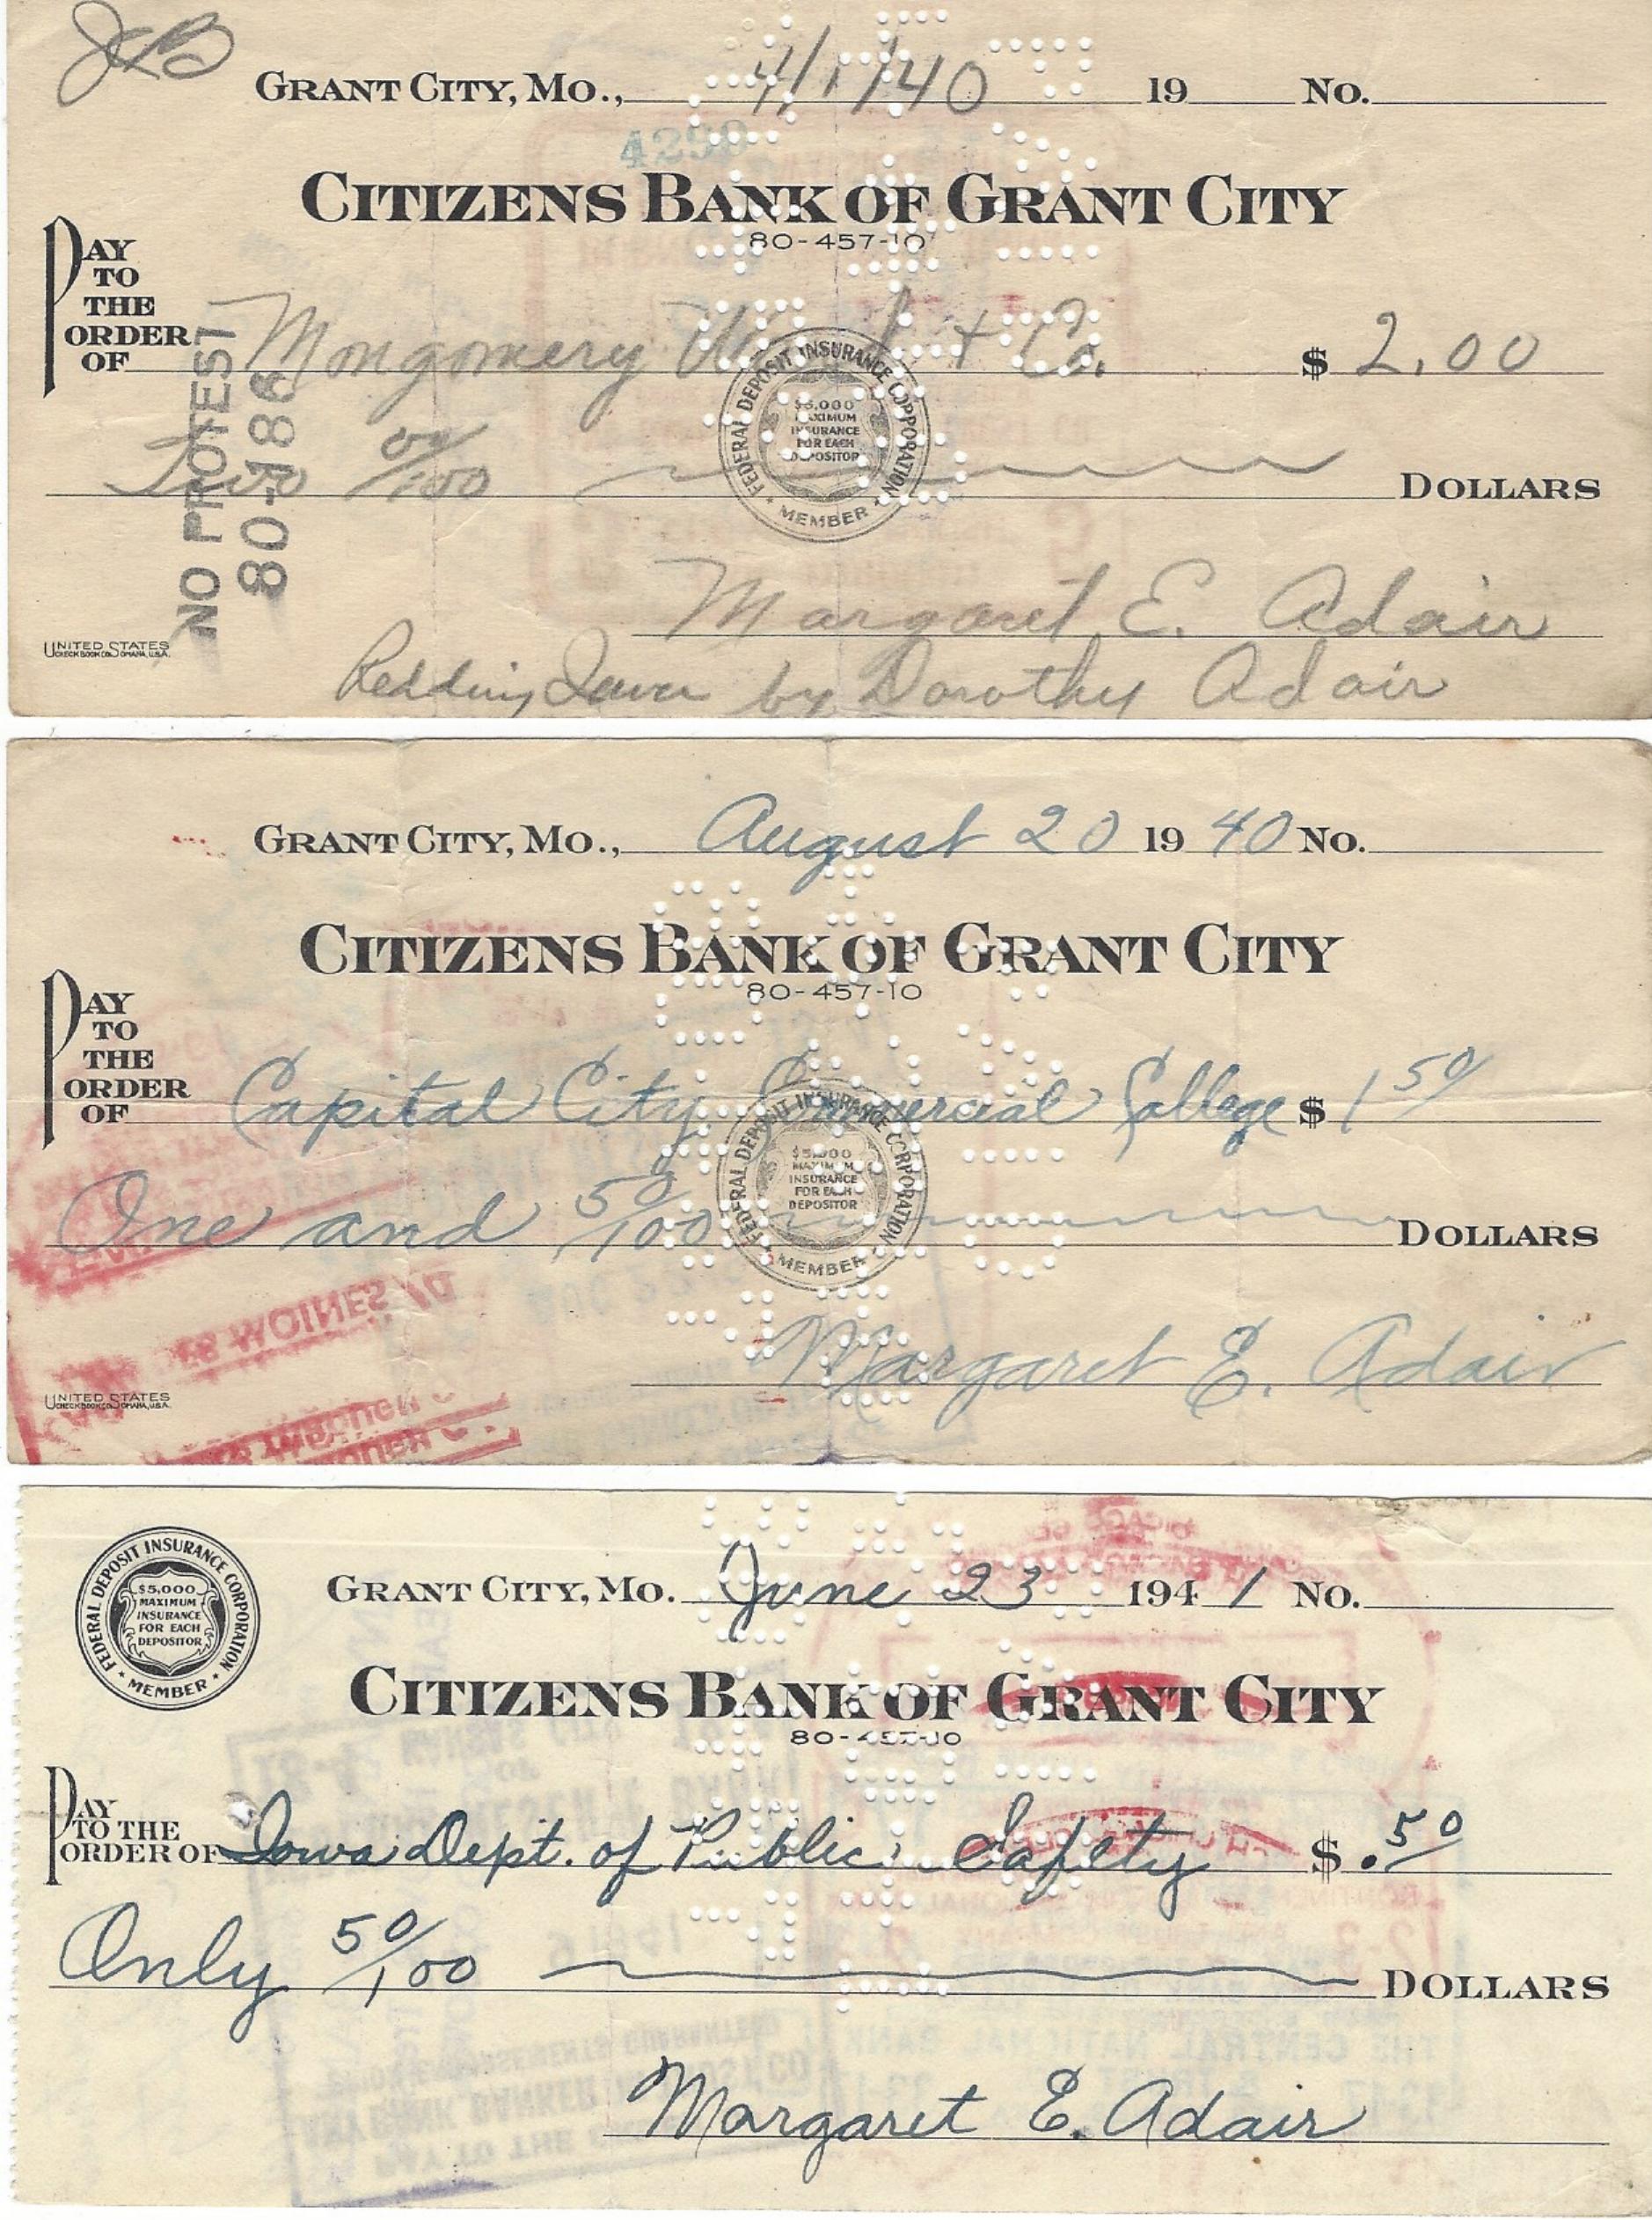 JCB
GRANT CITY, MO., 4/1/40 19 NO.
4290
CITIZENS BANK OF GRANT CITY
80-457-10
PAY TO THE ORDER OF Montgomery Ward + Co. $ 2.00
FEDERAL DEPOSIT INSURANCE CORPORATION
$5,000 MAXIMUM INSURANCE FOR EACH DEPOSITOR
MEMBER
Two 00/100 DOLLARS
NO PROTEST
80-186
Margaret E. Adair
UNITED STATES CHECK BOOK CO. OMAHA, U.S.A.
Redding Iowa by Dorothy Adair
GRANT CITY, MO., August 20 19 40 NO.
CITIZENS BANK OF GRANT CITY
80-457-10
PAY TO THE ORDER OF Capital City Commercial College $ 1 50
FEDERAL DEPOSIT INSURANCE CORPORATION
$5,000 MAXIMUM INSURANCE FOR EACH DEPOSITOR
MEMBER
One and 50/100 DOLLARS
DES MOINES
Margaret E. Adair
UNITED STATES CHECK BOOK CO. OMAHA, U.S.A.
FEDERAL DEPOSIT INSURANCE CORPORATION
$5,000 MAXIMUM INSURANCE FOR EACH DEPOSITOR
MEMBER
GRANT CITY, MO. June 23 194 1 NO.
CITIZENS BANK OF GRANT CITY
80-457-10
PAY TO THE ORDER OF Iowa Dept. of Public Safety $ .50
Only 50/100 DOLLARS
THE CENTRAL NATIONAL BANK
Margaret E. Adair